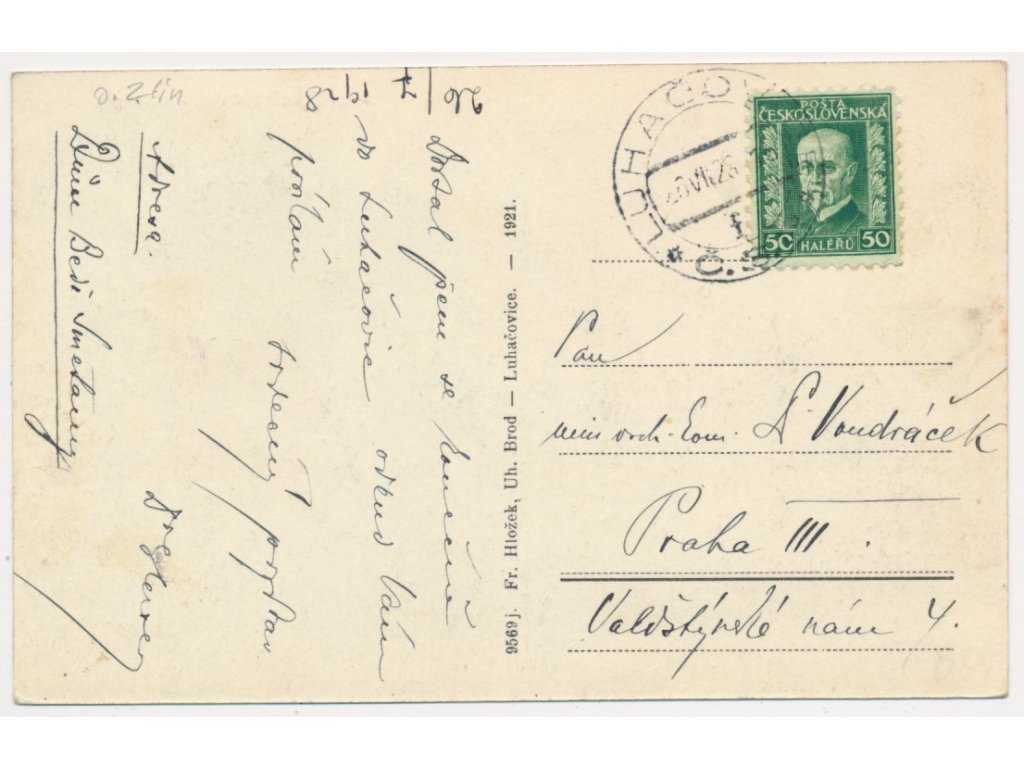 o. Zlín
26/7 1928
Dostal jsem se konečně
do Luhačovic odkud Vám
posílám srdečný pozdrav
Adresa.
Dům Bedř Smetany
9569 j. Fr. Hložek, Uh. Brod — Luhačovice. — 1921.
LUHAČOV
26.VII.28
Č.S
POSTA
ČESKOSLOVENSKÁ
50 HALÉŘŮ 50
Pan
min vrch. kom. Vondráček
Praha III.
Valdštýnské nám 4.